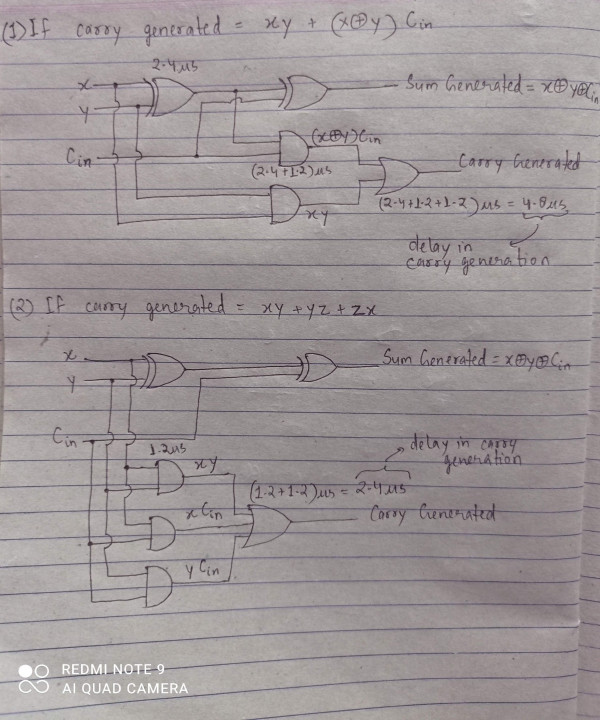 (1) If carry generated = xy + (x⊕y) Cin
2.4 μs
x
Sum Generated = x⊕y⊕Cin
y
(x⊕y)Cin
Cin
Carry Generated
(2.4+1.2) μs
xy
(2.4+1.2+1.2) μs = 4.8 μs
delay in
carry generation
(2) If carry generated = xy + yz + zx
x
Sum Generated = x⊕y⊕Cin
y
Cin
delay in carry
generation
1.2 μs
xy
(1.2+1.2) μs = 2.4 μs
x Cin
Carry Generated
y Cin
REDMI NOTE 9
AI QUAD CAMERA